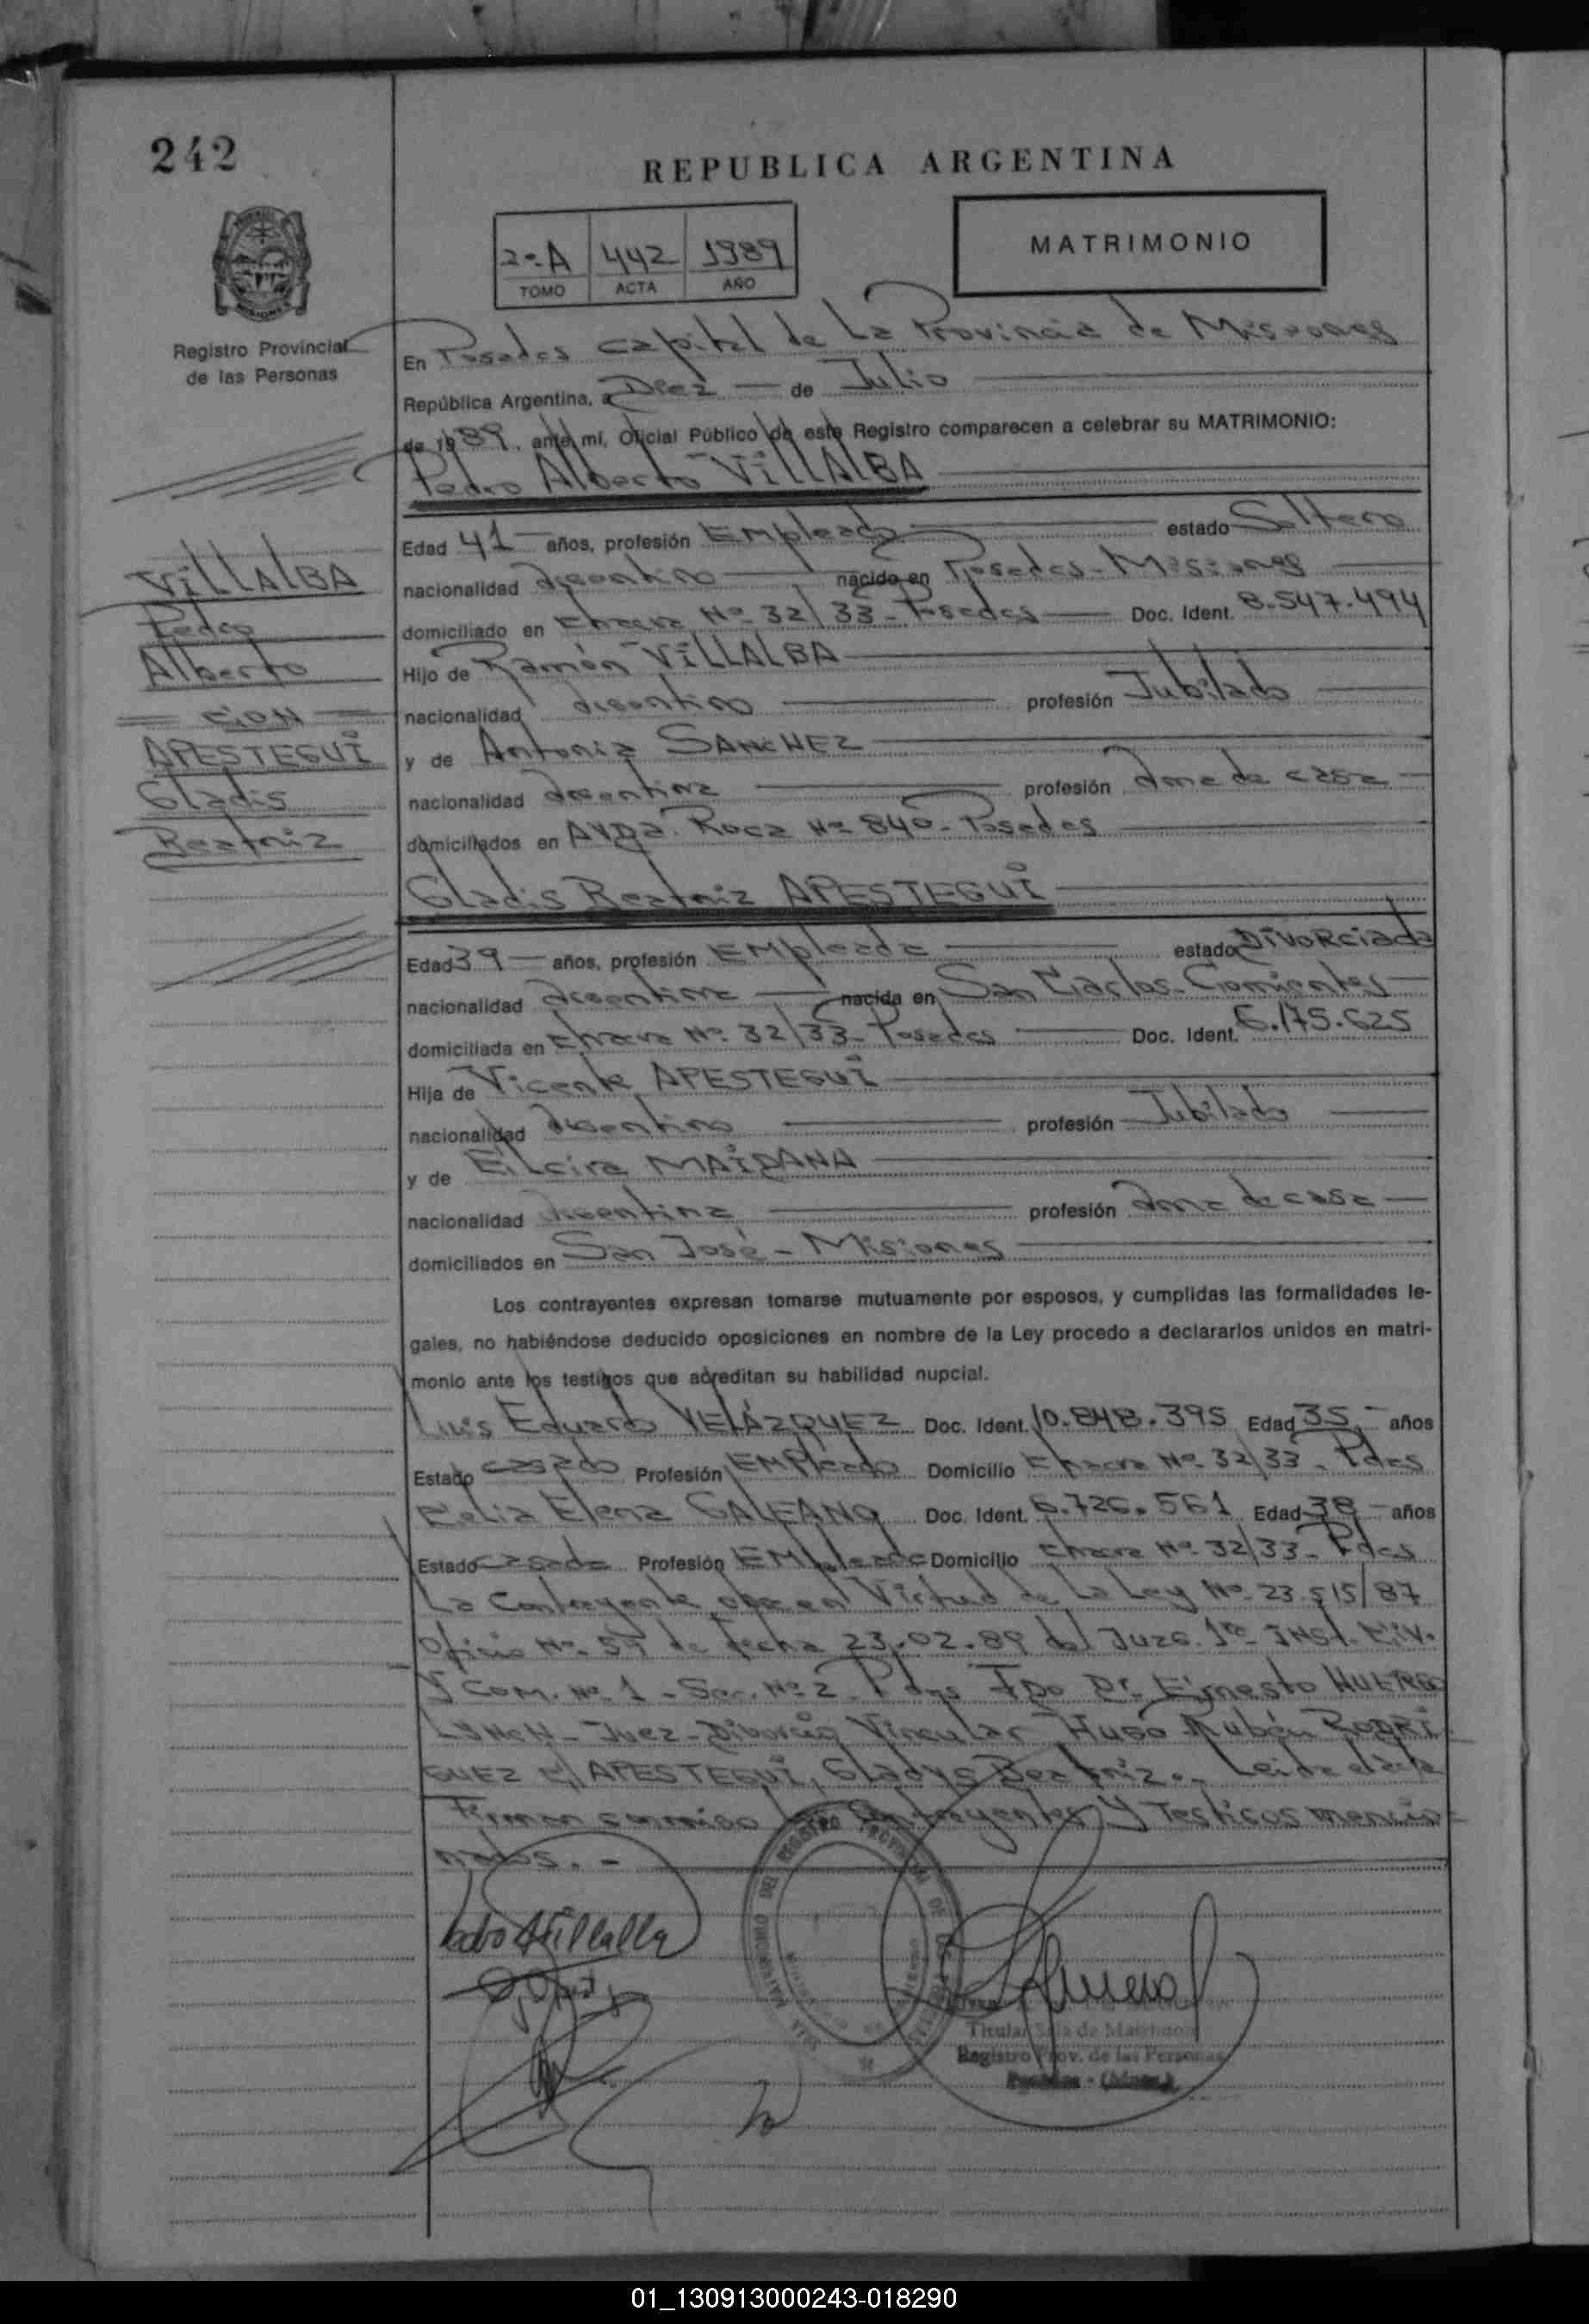 242
REPUBLICA ARGENTINA
MATRIMONIO
2º A 442 1989
TOMO ACTA AÑO
Registro Provincial
de las Personas
En Posadas capital de La Provincia de Misiones
República Argentina, a Diez de Julio
de 1989, ante mí, Oficial Público de este Registro comparecen a celebrar su MATRIMONIO:
Pedro Alberto VILLALBA
Edad 41 años, profesión Empleado estado Soltero
nacionalidad Argentino nacido en Posadas - Misiones
domiciliado en Chacra Nº 32/33 - Posadas Doc. Ident. 8.547.494
Hijo de Ramón VILLALBA
nacionalidad Argentino profesión Jubilado
y de Antonia SANCHEZ
nacionalidad Argentina profesión Ama de casa
domiciliados en AVDA. Roca Nº 840 - Posadas
Gladis Beatriz APESTEGUI
Edad 39 años, profesión Empleada estado Divorciada
nacionalidad Argentina nacida en San Carlos - Corrientes
domiciliada en Chacra Nº 32/33 - Posadas Doc. Ident. 6.175.625
Hija de Vicente APESTEGUI
nacionalidad Argentino profesión Jubilado
y de Elcira MAIDANA
nacionalidad Argentina profesión Ama de casa
domiciliados en San José - Misiones
Los contrayentes expresan tomarse mutuamente por esposos, y cumplidas las formalidades le-
gales, no habiéndose deducido oposiciones en nombre de la Ley procedo a declararlos unidos en matri-
monio ante los testigos que acreditan su habilidad nupcial.
Luis Eduardo VELÁZQUEZ Doc. Ident. 10.848.395 Edad 35 años
Estado casado Profesión Empleado Domicilio Chacra Nº 32/33 - Pdas
Celia Elena GALEANO Doc. Ident. 6.726.561 Edad 38 años
Estado casada Profesión Empleada Domicilio Chacra Nº 32/33 - Pdas
La Contrayente en Virtud de La Ley Nº 23.515/87
Oficio Nº 59 de fecha 23.02.89 del Juzg. 1ra Inst. Civ.
Y COM. Nº 1 - Sec. Nº 2 Pdas Fdo Dr. Ernesto HUERGO
LYNCH - Juez - Divorcio Vincular Hugo Rubén RODRI
GUEZ c/ APESTEGUI, Gladys Beatriz. - Leida el acta
Firman conmigo los Contrayentes Y Testigos mencio=
nados. -
VILLALBA
Pedro
Alberto
CON
APESTEGUI
Gladis
Beatriz
Titular Sala de Matrimon
Registro Prov. de las Personas
Posadas - (Mnes.)
01_130913000243-018290